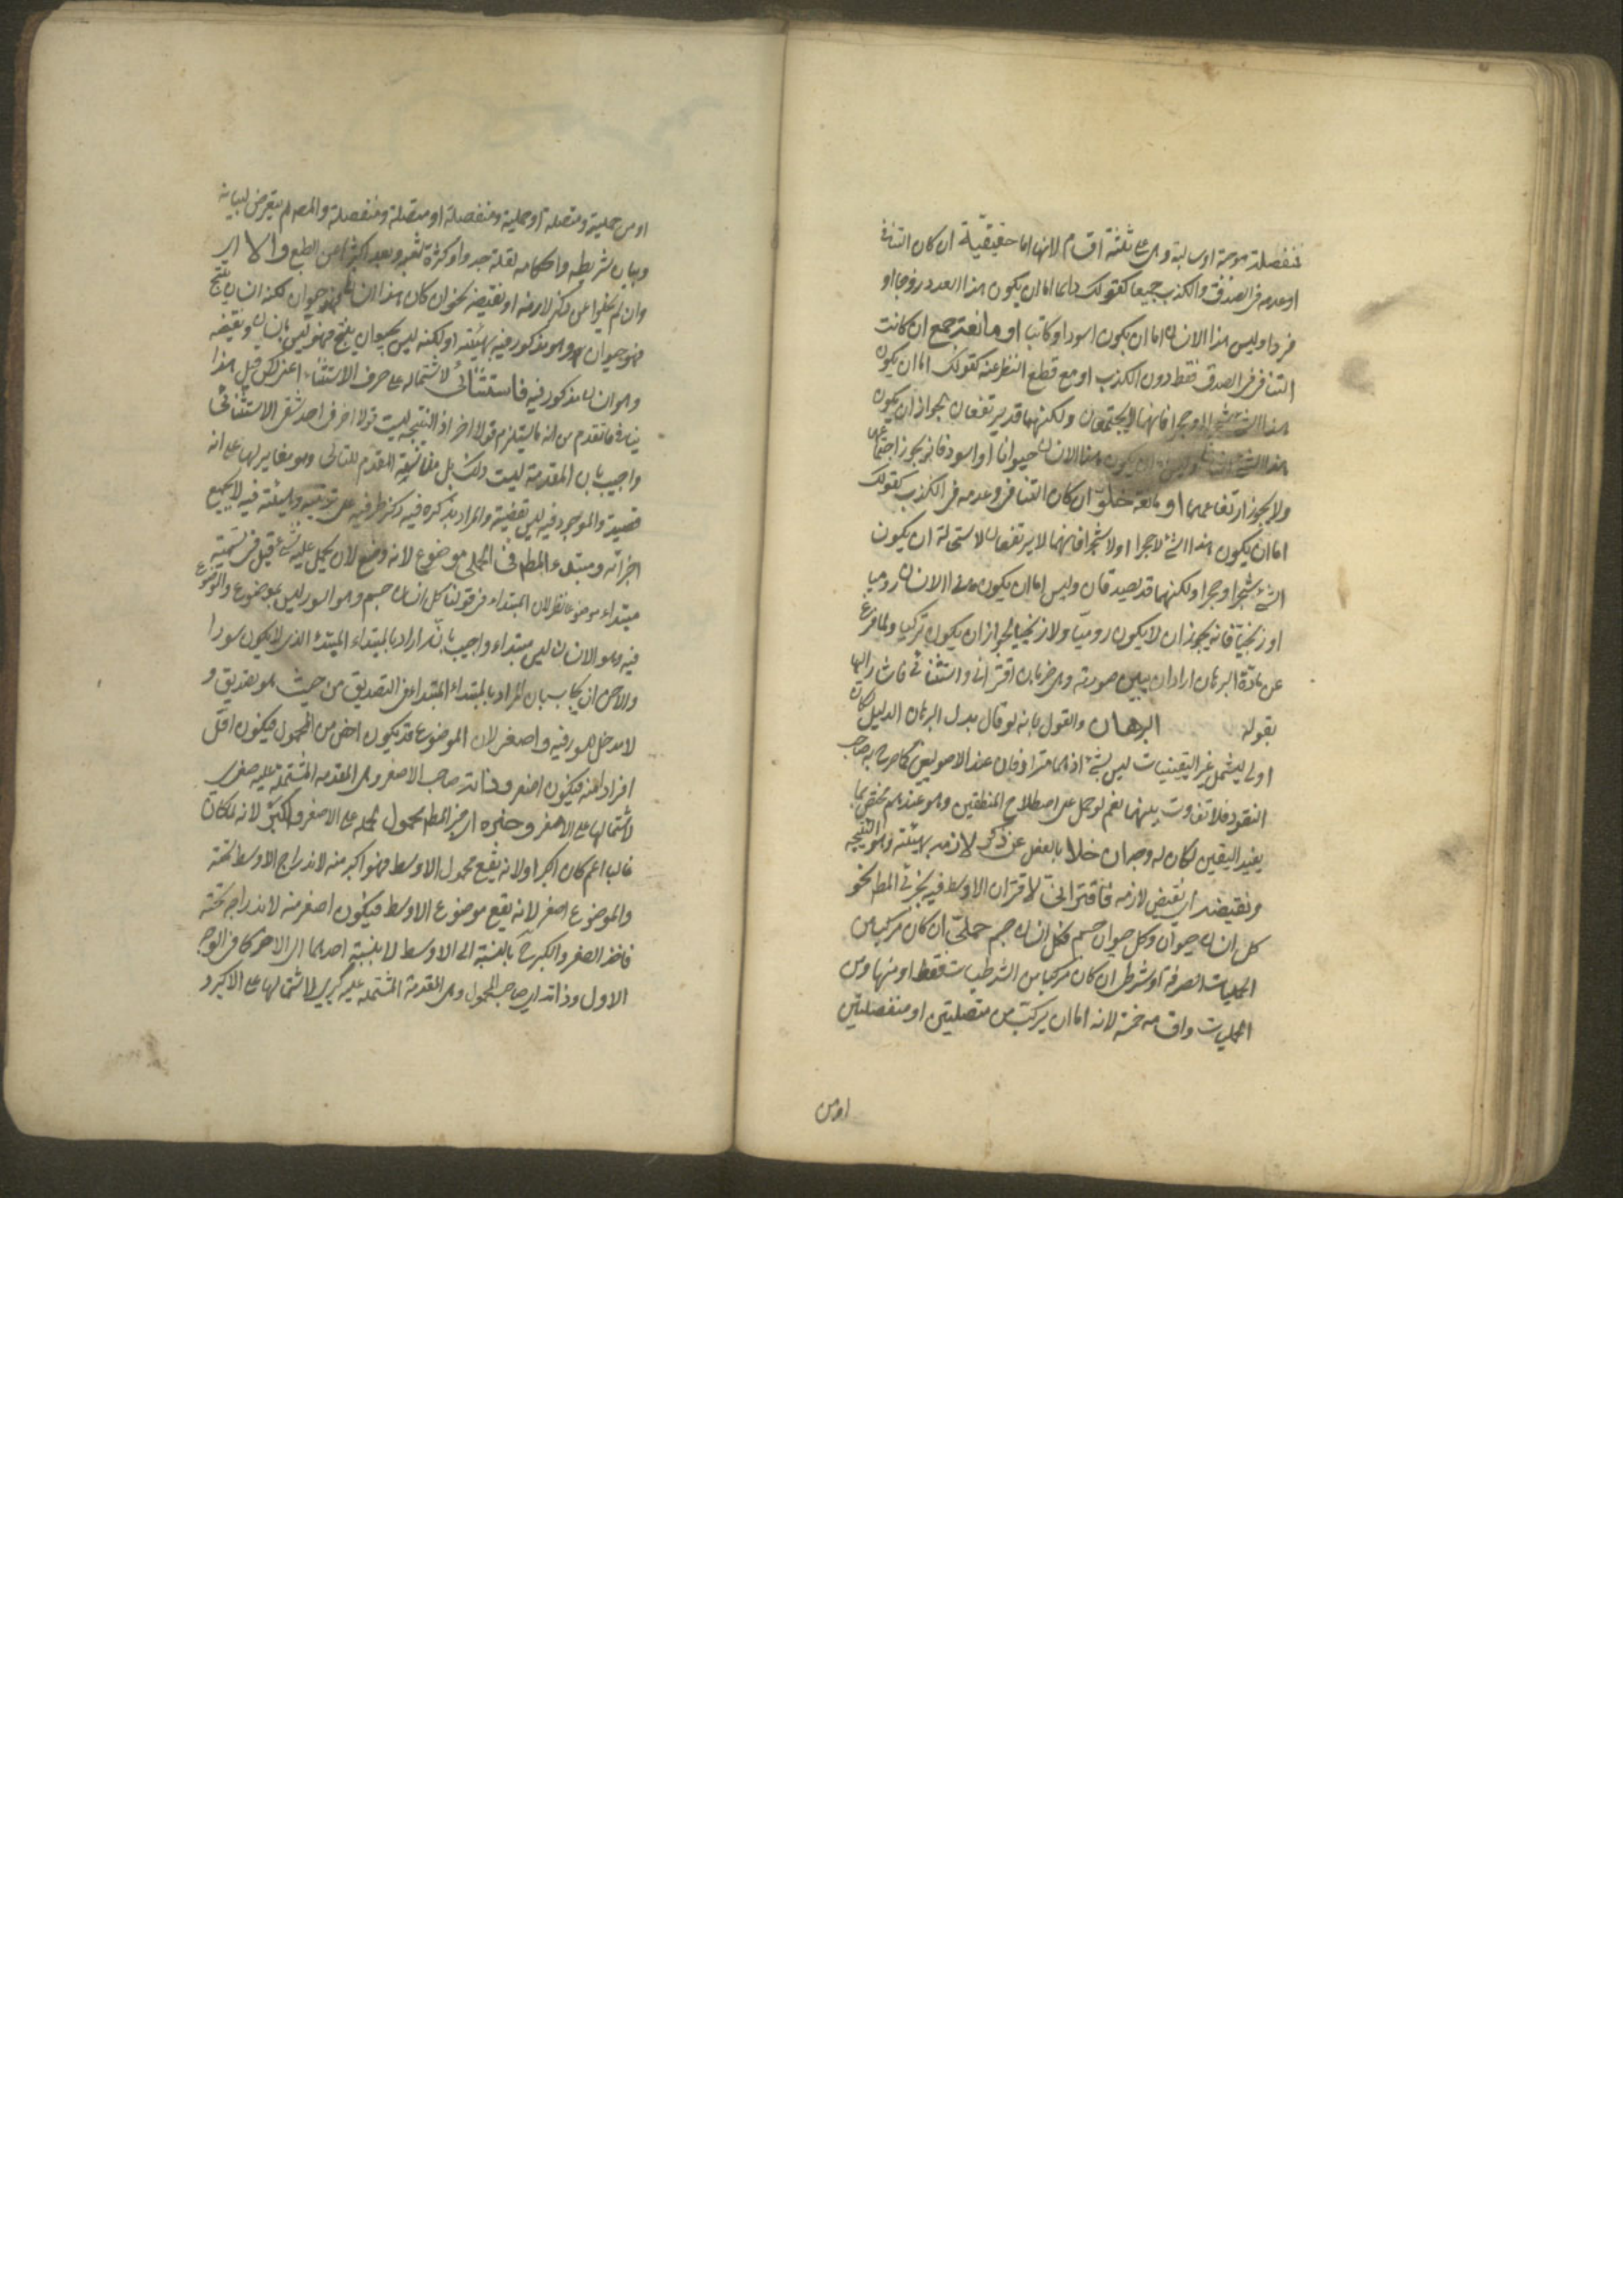 فمنفصلة موجبة او سالبة وهى على ثلثة اقسام لانها اما حقيقية ان كان التنافى
او عدمه فى الصدق والكذب جميعا كقولك دايما اما ان يكون هذا العدد زوجا او
فردا وليس هذا الانسان اما ان يكون اسود او كاتبا او مانعة جمع ان كانت
التنافر فى الصدق فقط دون الكذب او مع قطع النظر عنه كقولك اما ان يكون
هذا الشئ شجرا او حجرا فانهما لا يجتمعان ولكنهما قد يرتفعان بجواز ان يكون
هذا الشئ وليس اما ان يكون هذا الانسان حيوانا او اسود فانه يجوز اجتماعهما
ولا يجوز ارتفاعهما او مانعة خلو ان كان التنافى وعدمه فى الكذب كقولك
اما ان يكون هذا الشئ لا حجرا او لا شجرا فانهما لا يرتفعان لاستحالة ان يكون
الشئ شجرا وحجرا ولكنهما قد يصدقان وليس اما ان يكون هذا الانسان روميا
او زنجيا فانه يجوز ان لا يكون روميا ولا زنجيا لجواز ان يكون تركيا ولما فرغ
عن مادة البرهان اراد ان يبين صورته وهى ضربان اقترانى واستثنائى فاشار اليها
بقوله البرهان والقول بانه لو قال بدل البرهان الدليل كان
اولى ليشمل غير اليقينيات ليس بشئ اذ هما مترادفان عند الاصوليين كما صرح به صاحب
النقود فلا تفاوت بينهما نعم لو حمل على اصطلاح المنطقين وهو عندهم مختص بما
يفيد اليقين لكان له وجه ان خلا بالفعل عن ذكر لازمه بهيئته وهو النتيجة
ونقيضه اى نقيض لازمه فاقترانى لاقتران الاوسط فيه بجزئى المط نحو
كل انسان حيوان وكل حيوان جسم فكل انسان جسم حملى ان كان مركبا من
الحمليات الصرفة او شرطى ان كان مركبا من الشرطيات فقط او منها ومن
الحمليات واقسامه خمسة لانه اما ان يركب من متصلتين او منفصلتين
او من
او من حملية ومتصلة او حملية ومنفصلة او متصلة ومنفصلة والمص لم يتعرض لبيانه
وبيان شرايطه واحكامه لقلة جدواه او كثرة شعبه وبعد اكثرها عن الطبع والا اى
وان لم يخلوا عن ذكر لازمه او نقيضه نحو ان كان هذا انسانا فهو حيوان لكنه انسان ينتج
فهو حيوان وهو مذكور فيه بهيئته او لكنه ليس بحيوان ينتج فهو ليس بانسان ونقيضه
وهو انسان مذكور فيه فاستثنائى لاشتماله على حرف الاستثناء اعنى لكن قيل هذا
ينافى ما تقدم من انه ما يستلزم قولا اخر اذ النتيجة ليست قولا اخر فى احد شقى الاستثنائى
واجيب بان المقدمة ليست ذلك بل ملزوميته المقدم للتالى وهو مغاير لها على انه
قضية والموجود فيه ليس بقضية والمراد بذكره فيه ذكر طرفيه على ترتيبه وهيئته فيه لا بجميع
اجزائه ومبتداء المط فى الحملى موضوع لانه وضع لان يحمل عليه شئ قيل فى تسمية
مبتداء موضوعا نظر لان المبتداء فى قولنا كل انسان جسم وهو السور ليس بموضوع والموضوع
فيه وهو الانسان ليس مبتداء واجيب بانه اراد بالمبتداء المبتدأ الذى لا يكون سورا
والاحسن ان يجاب بان المراد بالمبتداء المبتدا فى التصديق من حيث هو تصديق و
لا مدخل للسور فيه واصغر لان الموضوع قد يكون اخص من المحمول فيكون اقل
افرادا منه فيكون اصغر وذاته صاحب الاصغر وهى المقدمة المشتملة عليه صغرى
لاشتمالها على الاصغر وخبره اى خبر المط محمول لحمله على الاصغر واكبر لانه لما كان
غالبا اعم كان اكبر او لانه يقع محمول الاوسط فهو اكبر منه لاندراج الاوسط تحته
والموضوع اصغر لانه يقع موضوع الاوسط فيكون اصغر منه لاندراجه تحته
فاخذ الصغر والكبر ح بالنسبة الى الاوسط لا بنسبة احدهما الى الاخر كما فى الوجه
الاول وذاته اى صاحب المحمول وهى المقدمة المشتملة عليه كبرى لاشتمالها على الاكبر و